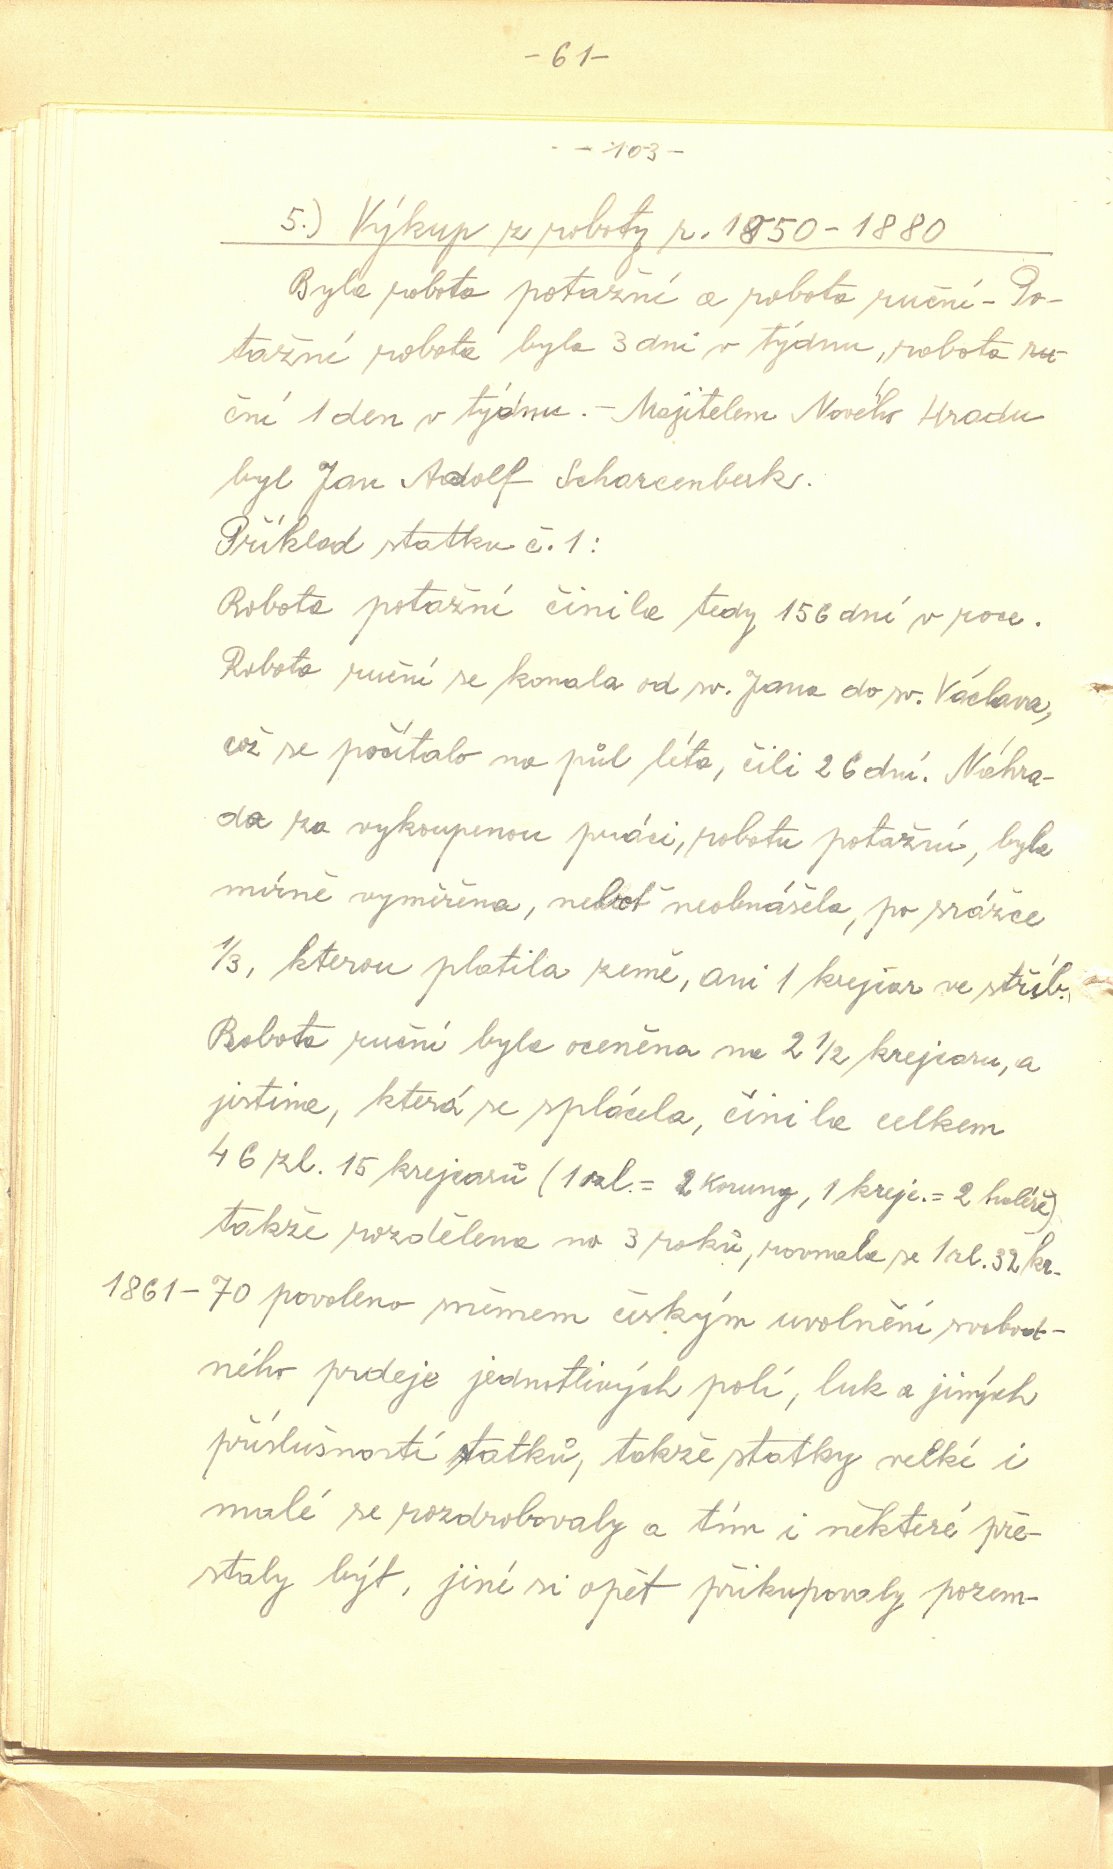 -61-
- - 103 -
5.) Výkup z roboty r. 1850-1880
Byla robota potažní a robota ruční - Po-
tažní robota byla 3 dni v týdnu, robota ru-
ční 1 den v týdnu. - Majitelem Nového Hradu
byl Jan Adolf Scharcenberk.
Příklad statku č. 1:
Robota potažní činila tedy 156 dní v roce.
Robota ruční se konala od sv. Jana do sv. Václava,
což se počítalo na půl léta, čili 26 dní. Náhra-
da za vykoupenou práci, robotu potažní, byla
mírně vyměřena, neboť neobnášela, po srážce
1/3, kterou platila země, ani 1 krejcar ve stříb.
Robota ruční byla oceněna na 2 1/2 krejcaru, a
jistina, která se splácela, činila celkem
46 zl. 15 krejcarů (1 zl. = 2 koruny, 1 krejc. = 2 haléře)
takže rozdělena na 3 roků, rovnala se 1 zl. 32 kr.
1861-70 povoleno sněmem českým uvolnění svobod-
ného prdeje jednotlivých polí, luk a jiných
příslušností statků, takže statky velké i
malé se rozdrobovaly a tím i některé pře-
staly být, jiné si opět přikupovaly pozem-